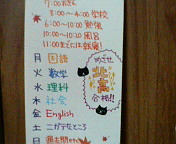 7:00 おきる
8:00～4:00 学校
6:00～10:00 勉強
10:00～10:20 風呂
11:00までには就寝!
月 国語
火 数学
水 理科
木 社会
金 English
土 ニガテなところ
日
めざせ
北高
合格!!